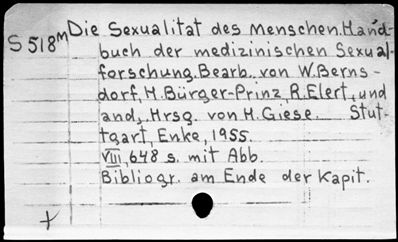 S 518м Die Sexualität des Menschen. Hand-
buch der medizinischen Sexual-
forschung. Bearb. von W. Berns-
dorf, H. Bürger-Prinz, R. Elert, und
and., Hrsg. von H. Giese. Stut-
tgart, Enke, 1955.
VIII, 648 s. mit Abb.
Bibliogr. am Ende der Kapit.